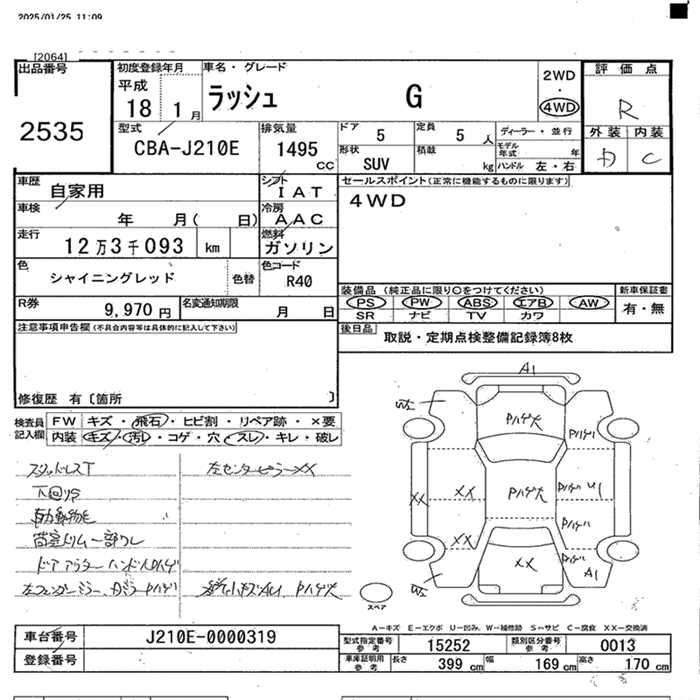 2025/01/25 11:09
[2064]
出品番号
2535
初度登録年月
平成
18 1 月
車名・グレード
ラッシュ G
2WD
・
4WD
評価点
R
外装 内装
D C
型式
CBA-J210E
排気量
1495
CC
ドア 5
定員 5 人
形状
SUV
積載
kg
ディーラー・並行
モデル年式 年
ハンドル 左・右
車歴
自家用
シフト
IAT
車検
年 月( 日)
冷房
AAC
走行
12万3千093 km
燃料
ガソリン
色
シャイニングレッド
色替
色コード
R40
R券
9,970 円
名変通知期限
月 日
セールスポイント(正常に機能するものに限ります)
4WD
装備品 (純正品に限り○をつけてください)
PS PW ABS エアB AW
SR ナビ TV カワ
新車保証書
有・無
後日品
取説・定期点検整備記録簿8枚
注意事項申告欄(不具合内容等は具体的に記入して下さい)
修復歴 有〔箇所 〕
検査員記入欄
FW キズ・飛石・ヒビ割・リペア跡・×要
内装 キズ・汚レ・コゲ・穴・スレ・キレ・破レ
スタットレスT
下回りS
荷室トリム一部ワレ
ドアアウターハンドルPハゲ
左センターピラーXX
A1
W2
Pハゲ大
Pハゲ
XX
XX
Pハゲ大
Pハゲ U1
XX
Pハゲ
XX
Pハゲ
A1
W2
スペア
A−キズ E−エクボ U−凹み、W−補修跡 S−サビ C−腐食 XX−交換済
車台番号
J210E-0000319
登録番号
型式指定番号
参考
15252
類別区分番号
参考
0013
車庫証明用
参考
長さ 399 cm
幅 169 cm
高さ 170 cm